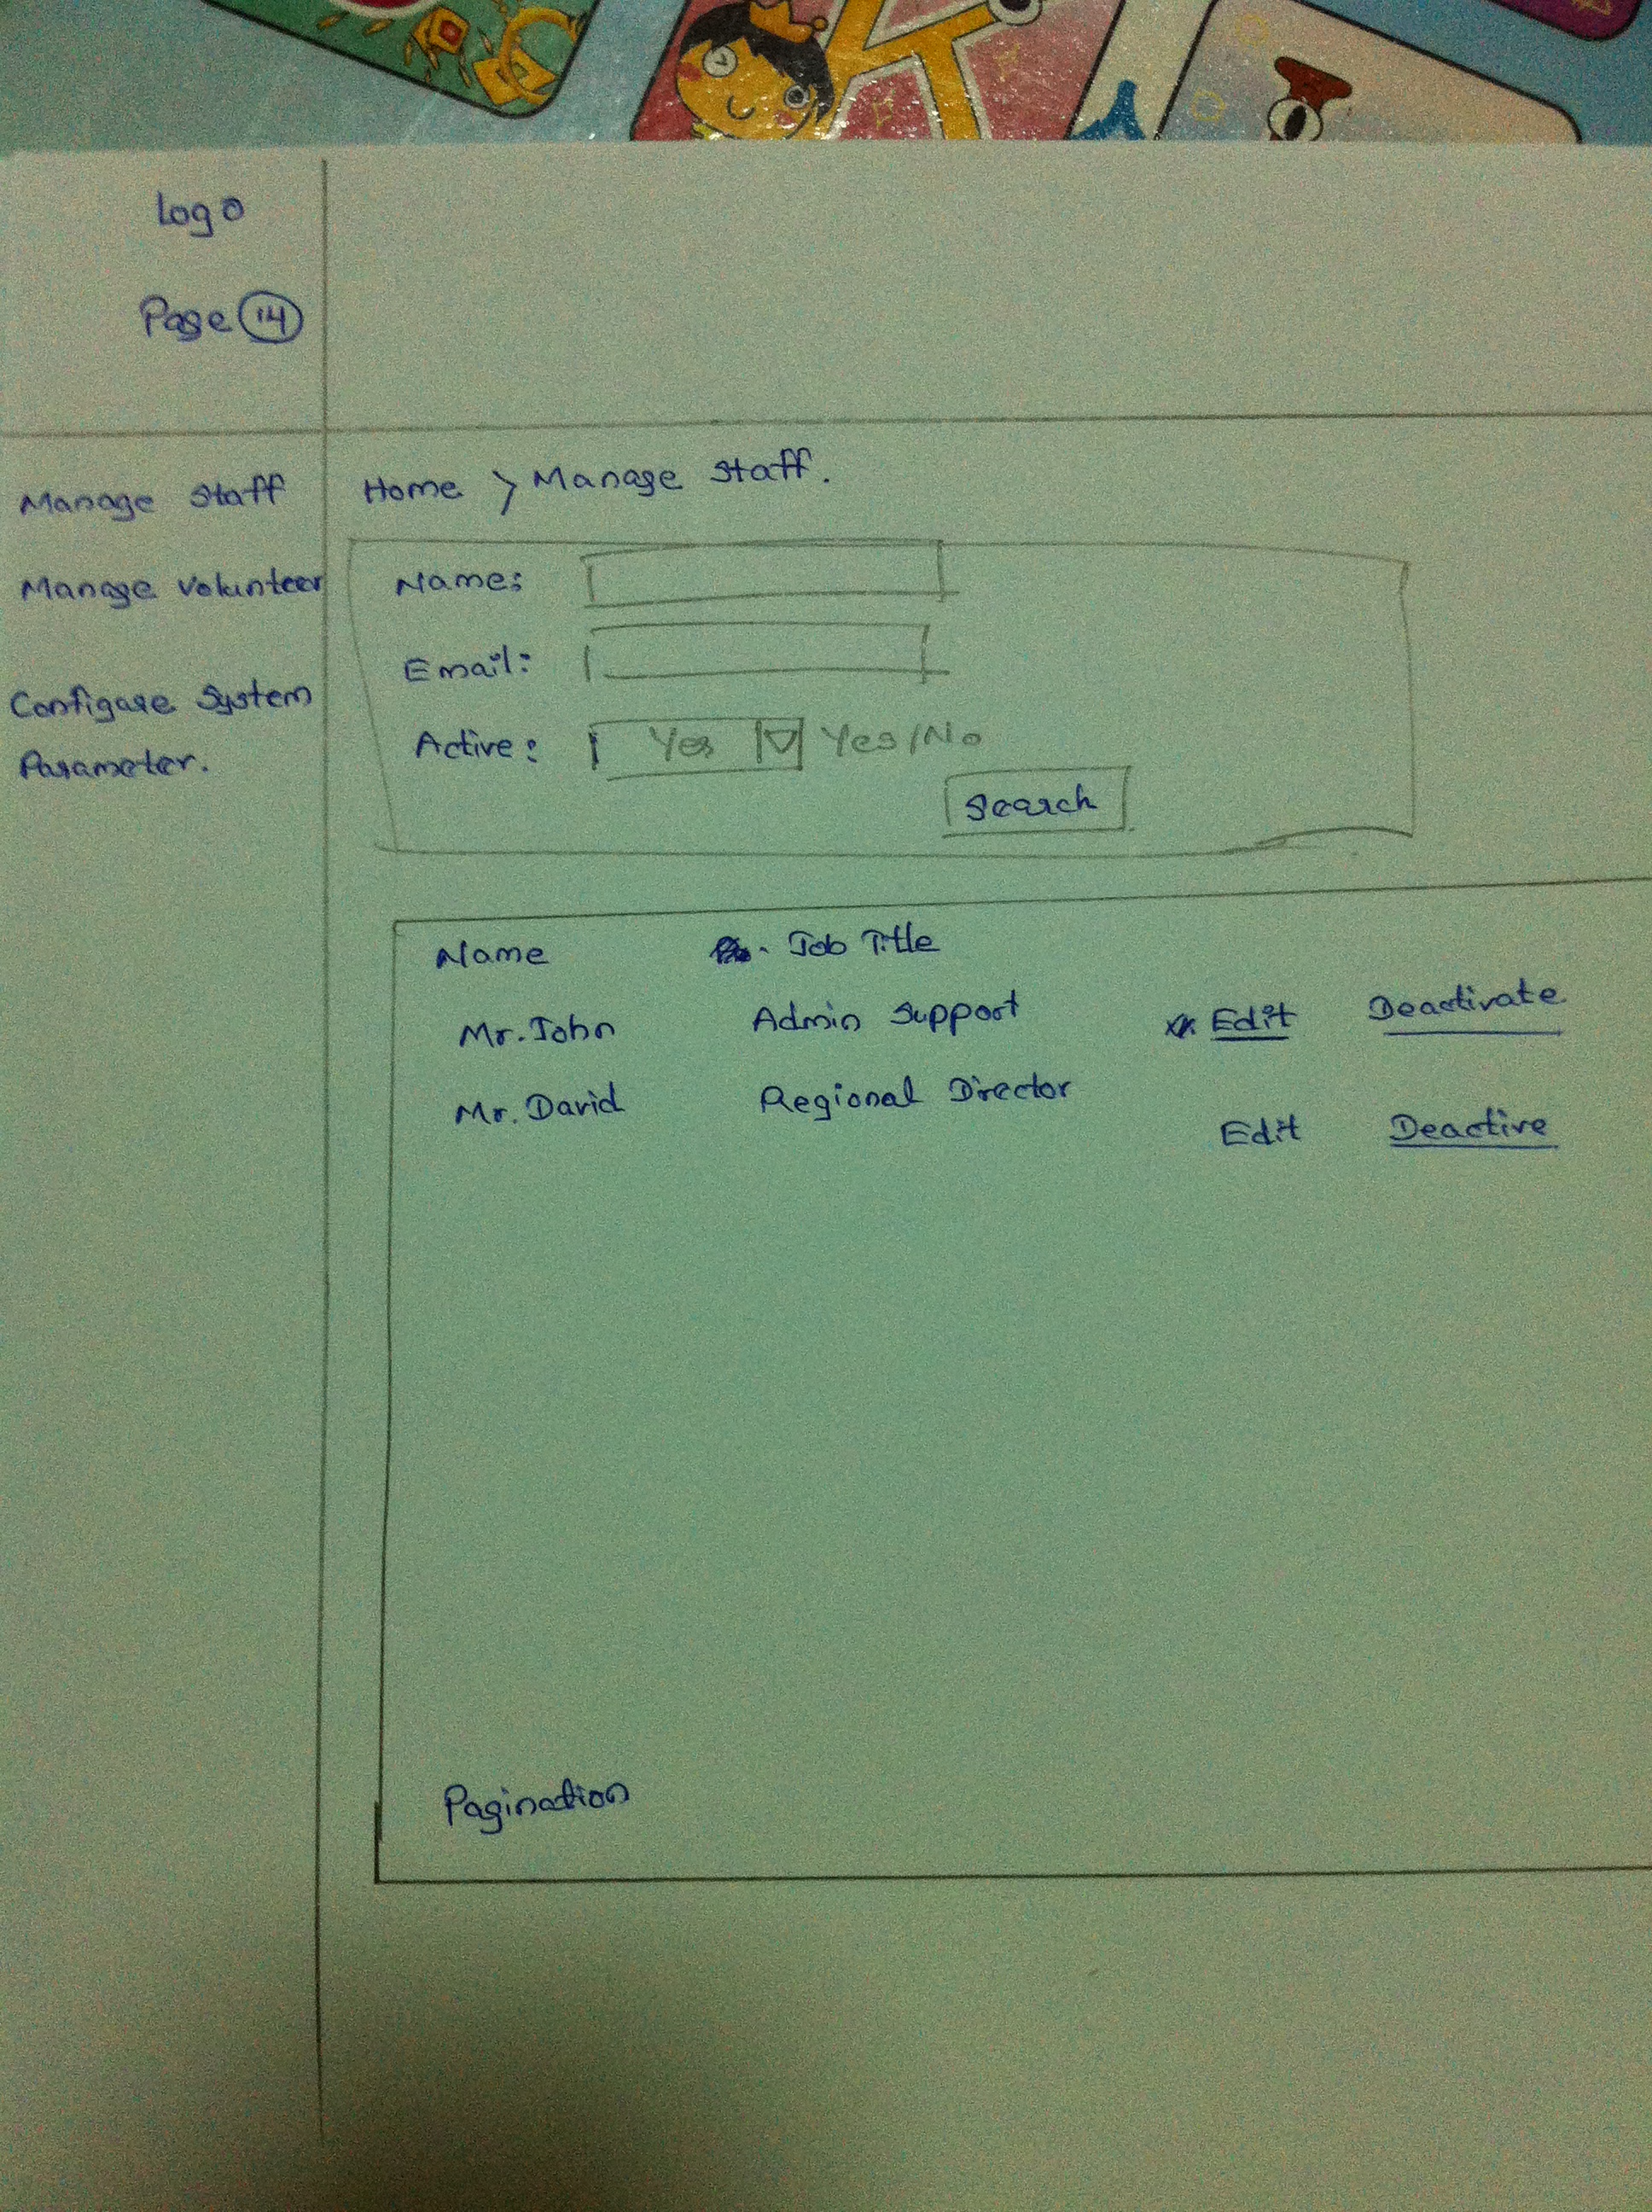 Logo
Page 14
Manage Staff
Manage Volunteer
Configare System
Parameter.
Home > Manage Staff.
Name:
Email:
Active: Yes Yes/No
Search
Name Job Title
Mr. John Admin Support Edit Deactivate
Mr. David Regional Director Edit Deactive
Pagination